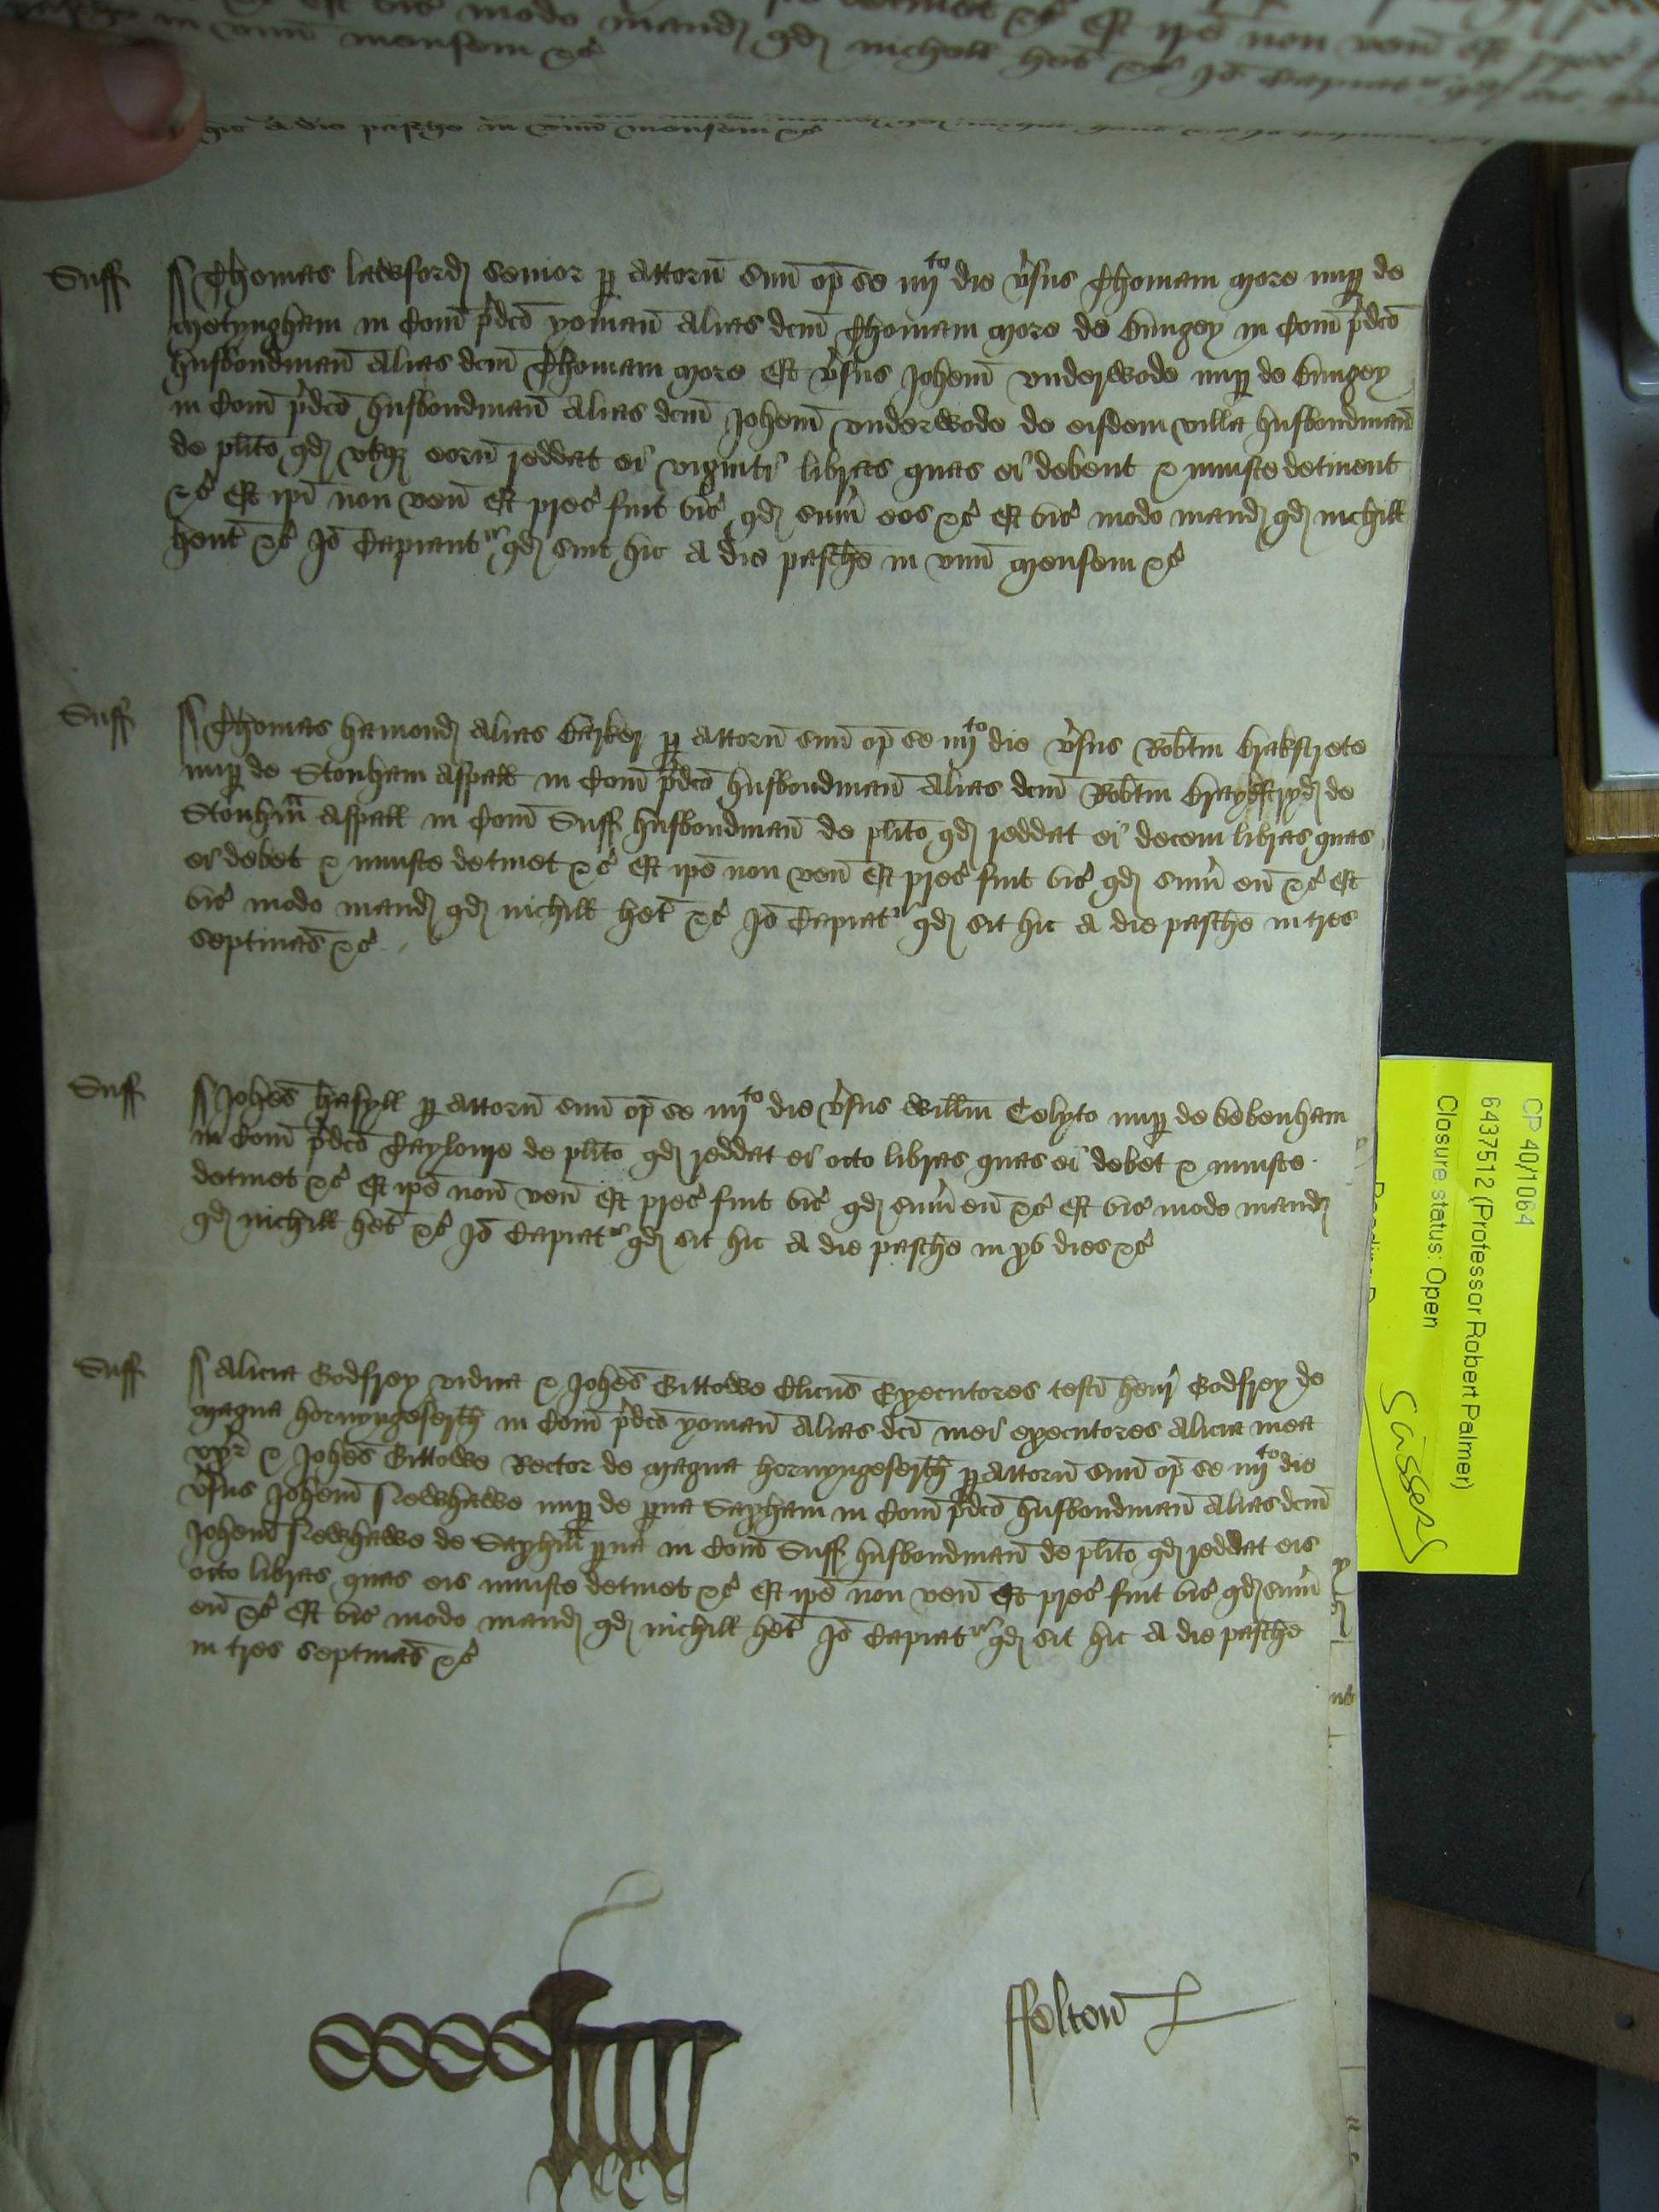 est vic modo mand qd nichill het &c Io Capiat
in unu mensem &c
hic a die pasche in unu mensem &c
Suff Thomas lawsford senior p Attorn suu op se iiijto die vsus Thomam More nup de
Metyngham in Com pdco yoman alias dcm Thomam More de Bungey in Com pdco
husbondman alias dcm Thomam More Et vsus Johem Underwode nup de Bungey
in Com pdco husbondman alias dcm Johem Underwode de eisdem villa husbondman
de plito qd utq eoru reddat ei viginti libras quas ei debent & iniuste detinent
&c Et ipi non ven Et prec fuit vic qd sum eos &c Et vic modo mand qd nichill
hent &c Io Capiantr qd sint hic a die pasche in unu Mensem &c
Suff Thomas hamond alias Barker p Attorn suu op se iiijto die vsus Robtm Brakstrete
nup de Stonham Aspall in Com pdco husbondman alias dcm Robtm de
Stonhm Aspall in Com Suff husbondman de plito qd reddat ei decem libras quas
ei debet & iniuste detinet &c Et ipe non ven Et prec fuit vic qd sum eu &c Et
vic modo mand qd nichill het &c Io Capiatr qd sit hic a die pasche in tres
septimas &c
Suff Johes hasyll p Attorn suu op se iiijto die vsus Willm Colyte nup de debenham
in Com pdco Taylour de plito qd reddat ei octo libras quas ei debet & iniuste
detinet &c Et ipe non ven Et prec fuit vic qd sum eu &c Et vic modo mand
qd nichill het &c Io Capiatr qd sit hic a die pasche in xv dies &c
Suff Alicia Godfrey vidua & Johes Bittowe Clicus Executores testi henr Godfrey de
Magna hornyngeserth in Com pdco yoman alias dci mei executores Alicia mea
uxr & Johes Bittowe Rector de Magna hornyngeserth p Attorn suu op se iiijto die
vsus Johem Newhawe nup de pua Saxham in Com pdco husbondman alias dcm
Johem Newhawe de Saxhm pua in Com Suff husbondman de plito qd reddat eis
octo libras quas eis iniuste detinet &c Et ipe non ven Et prec fuit vic qd sum
eu &c Et vic modo mand qd nichill het Io Capiatr qd sit hic a die pasche
in tres septimas &c
ffelton
CP 40/1064
6437512 (Professor Robert Palmer)
Closure status: Open